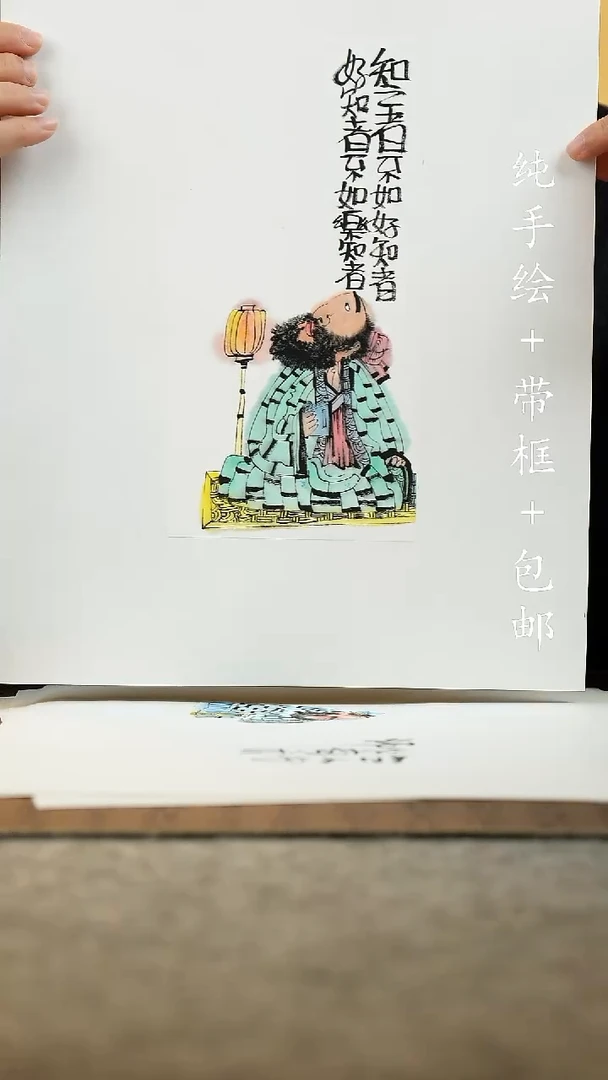 知之者不如好知者
好知者不如樂知者
纯手绘+带框+包邮